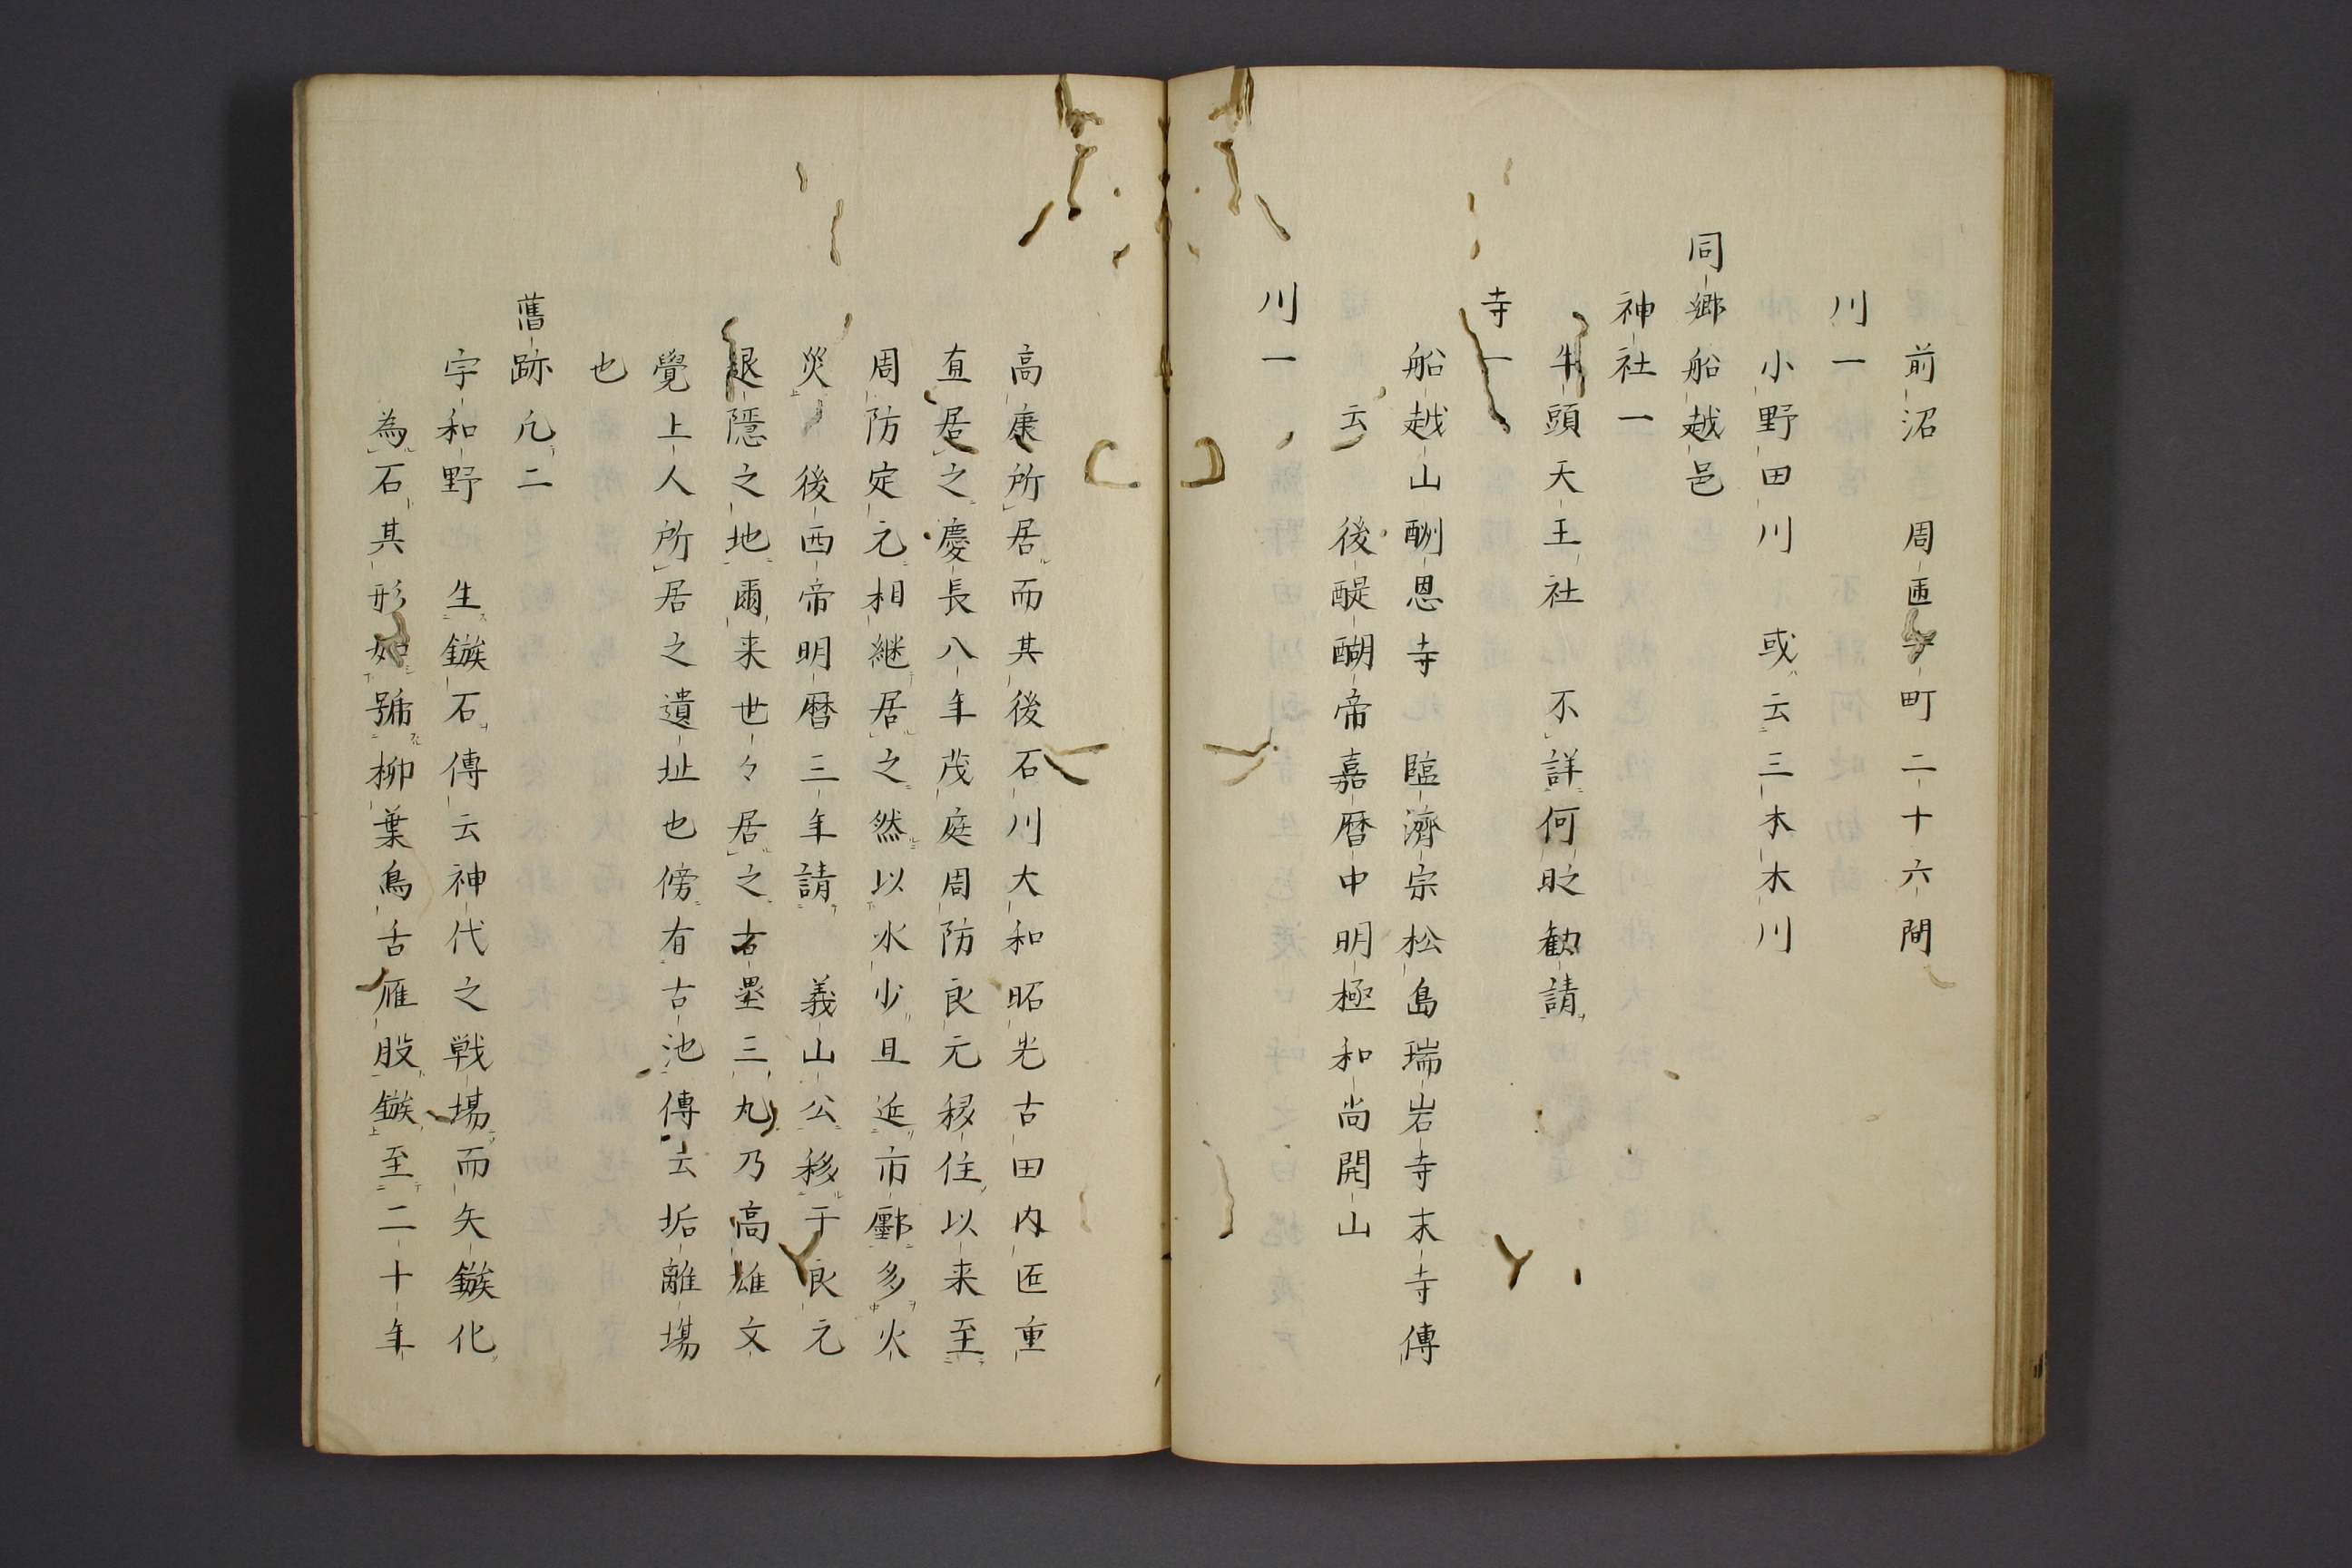 前沼　周匝　町二十六間
川一
小野田川　或云三木木川
同郷船越邑
神社一
牛頭天王社　不詳何時勧請
寺一
船越山酬恩寺　臨濟宗松島瑞岩寺末寺傳
云　後醍醐帝嘉暦中明極和尚開山
川一
高康所居而其後石川大和昭光古田内匠重
直居之慶長八年茂庭周防良元移住以来至
周防定元相継居之然以水少且近市鄽多火
災　後西帝明暦三年請　義山公移于良元
退隱之地爾来世々居之古壘三丸乃高雄文
覺上人所居之遺址也傍有古池傳云垢離場
也
舊跡凡二
宇和野　生鏃石傳云神代之戦場而矢鏃化
為石其形如號柳葉鳥舌雁股鏃至二十年